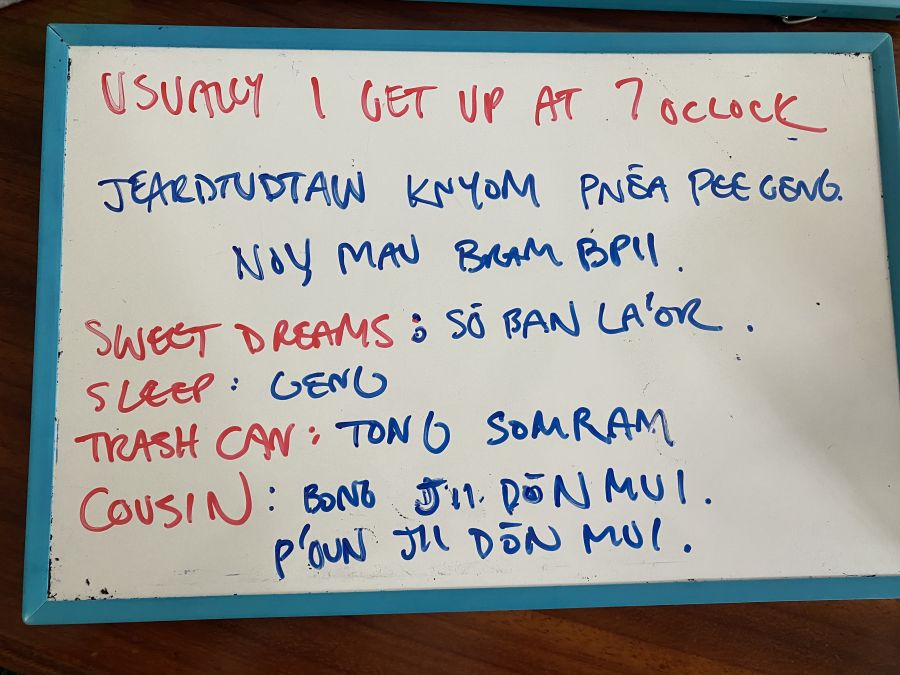 USUALLY I GET UP AT 7 OCCLOCK
JEARDTUDTAW KNYOM PNĒA PEE GENG.
NOY MAU BRAM BPII.
SWEET DREAMS: SŌ BAN LA'OR.
SLEEP: GENG
TRASH CAN: TONG SOMRAM
COUSIN: BONG JII DŌN MUI.
P'OUN JII DŌN MUI.